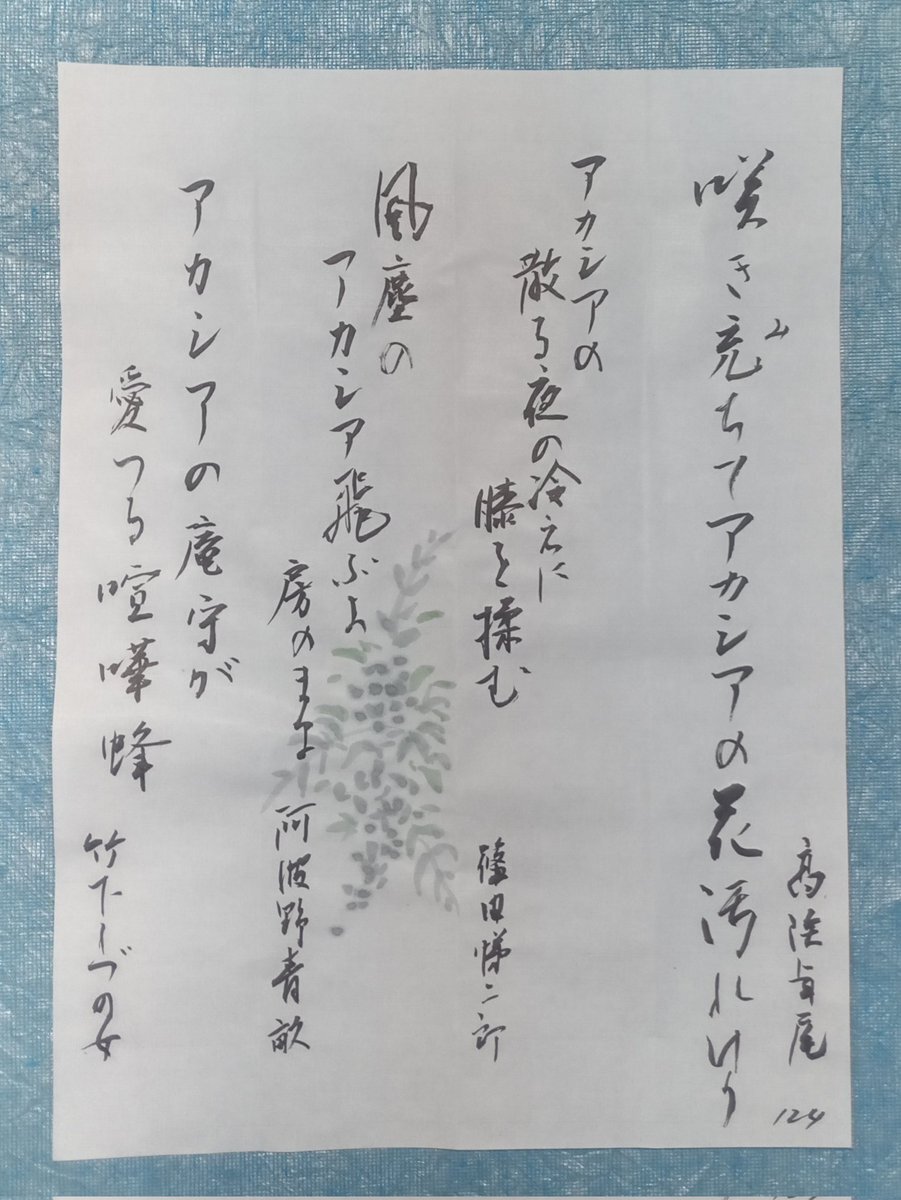 咲き充ちてアカシアの花汚れけり
アカシアの
散る夜の冷えに
膝を揉む
篠田悌二郎
風塵の
アカシア飛ぶよ
房のまま
阿波野青畝
アカシアの庵守が
愛づる喧嘩蜂
竹下しづの女
124